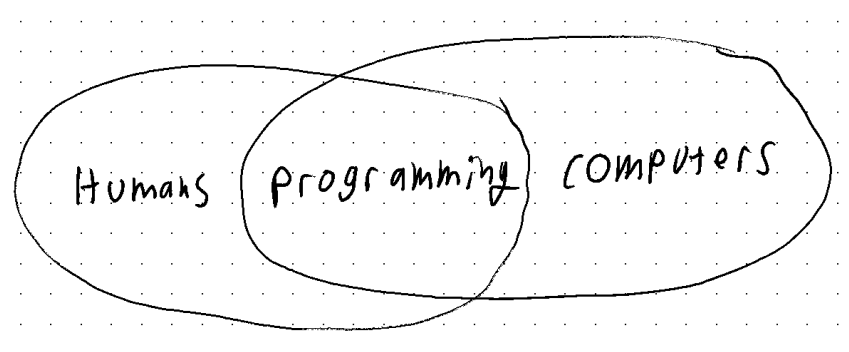 Humans programming computers